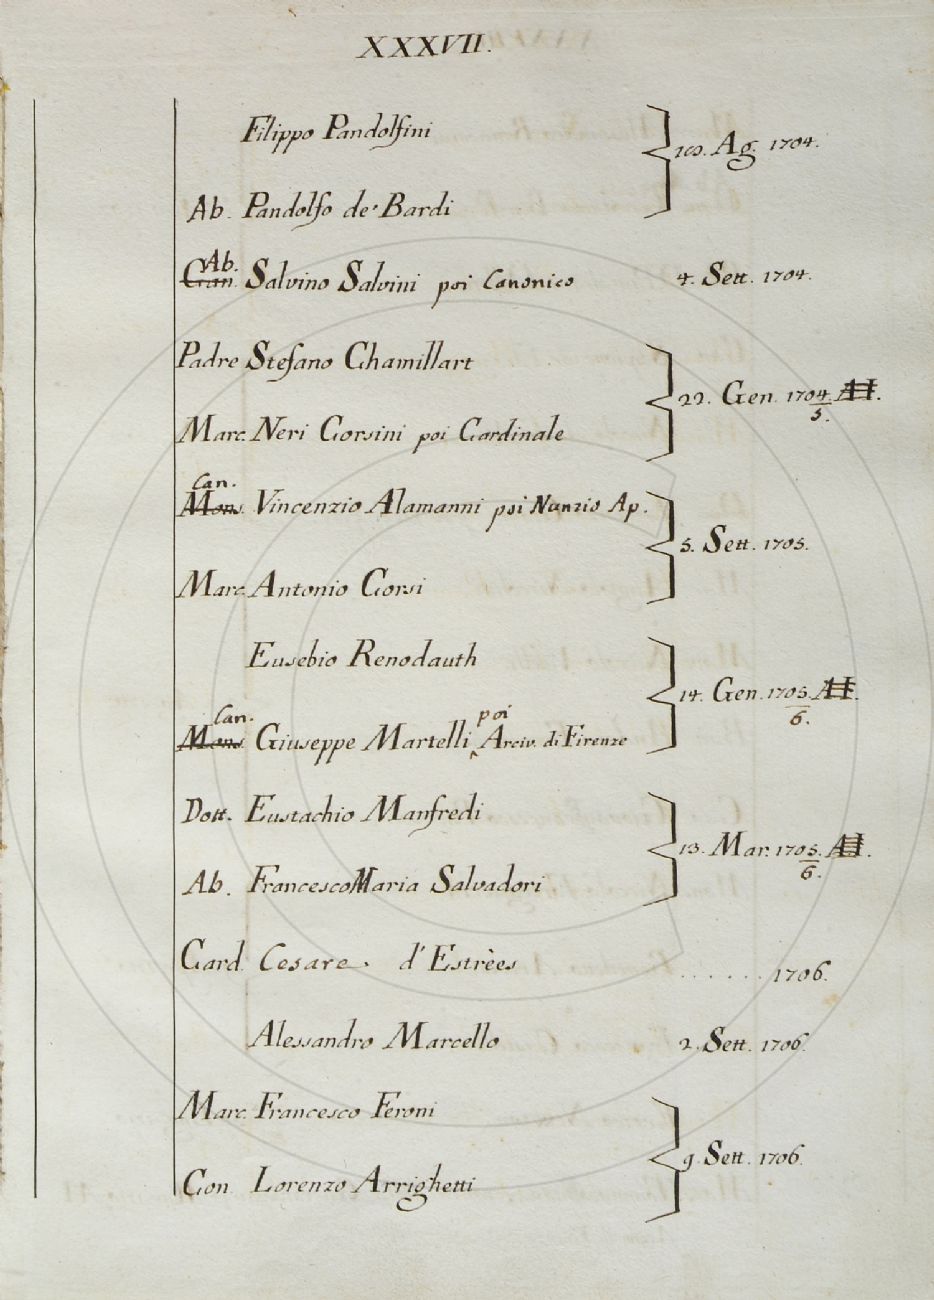 XXXVII.
Filippo Pandolfini
Ag. 1704.
Ab. Pandolfo de' Bardi
Ab.
Can. Salvino Salvini poi Canonico 4. Sett. 1704.
Padre Stefano Chamillart
22. Gen. 1704.
5.
Marc. Neri Corsini poi Cardinale
Can.
Mons. Vincenzio Alamanni poi Nunzio Ap.
5. Sett. 1705.
Marc. Antonio Corsi
Eusebio Renodauth
14. Gen. 1705.
6.
Can. poi
Mons. Giuseppe Martelli Arciv. di Firenze
Dott. Eustachio Manfredi
13. Mar. 1705.
6.
Ab. Francesco Maria Salvadori
Card. Cesare d'Estrèes ....... 1706.
Alessandro Marcello 2. Sett. 1706.
Marc. Francesco Feroni
9. Sett. 1706.
Con. Lorenzo Arrighetti